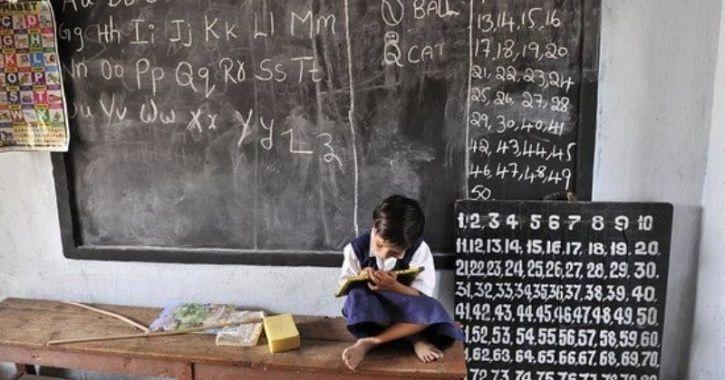 PHABET
Gg Hh Ii Jj Kk Ll Mm
Nn Oo Pp Qq Rr Ss Tt
Uu Vv Ww Xx Yy Zz
BALL
2 CAT
13, 14, 15, 16
17, 18, 19, 20
21, 22, 23, 24
25, 26, 27, 28
29, 30, 40, 41
42, 43, 44, 45
46, 47, 48, 49
50
1, 2, 3, 4 5 6 7 8 9 10
11, 12, 13, 14, 15, 16, 17, 18, 19, 20.
21, 22, 23, 24, 25, 26, 27, 28, 29, 30.
31, 32, 33, 34, 35, 36, 37, 38, 39, 40.
41, 42, 43, 44, 45, 46, 47, 48, 49, 50.
51, 52, 53, 54, 55, 56, 57, 58, 59, 60.
61, 62, 63, 64, 65, 66, 67, 68, 69, 70.
71, 72, 73, 74, 75, 76, 77, 78, 79, 80